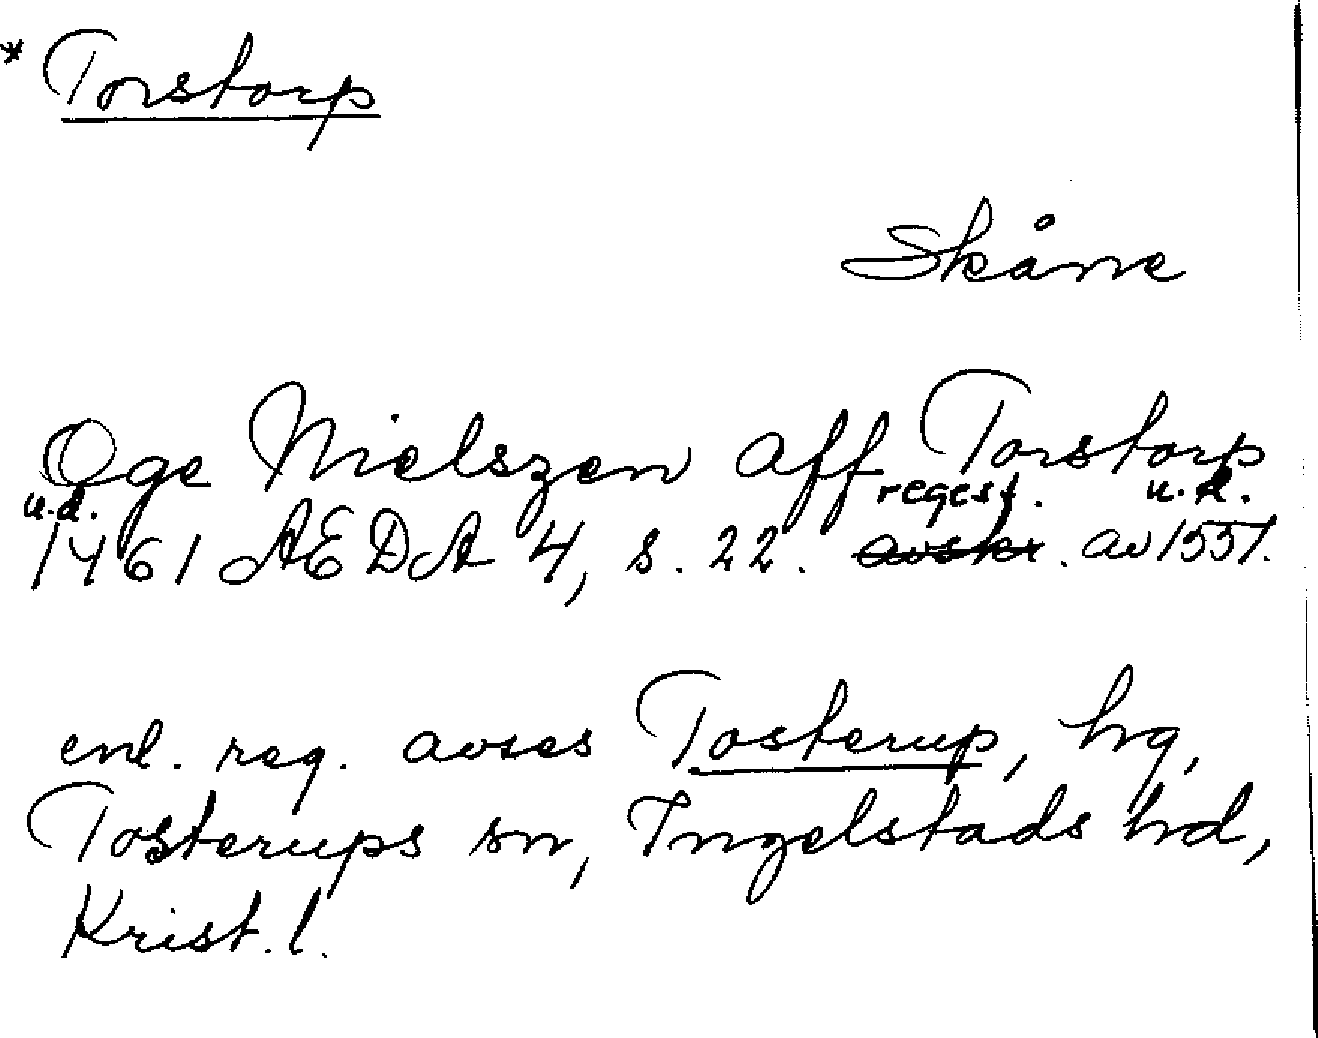 * Torstorp
Skåne
Oge Nielszen aff Torstorp
u.d. regest. u.d.
1461 ÆDA 4, s. 22. avskr. av 1551.
enl. reg. avses Tosterup, hg,
Tosterups sn, Ingelstads hd,
Krist. l.